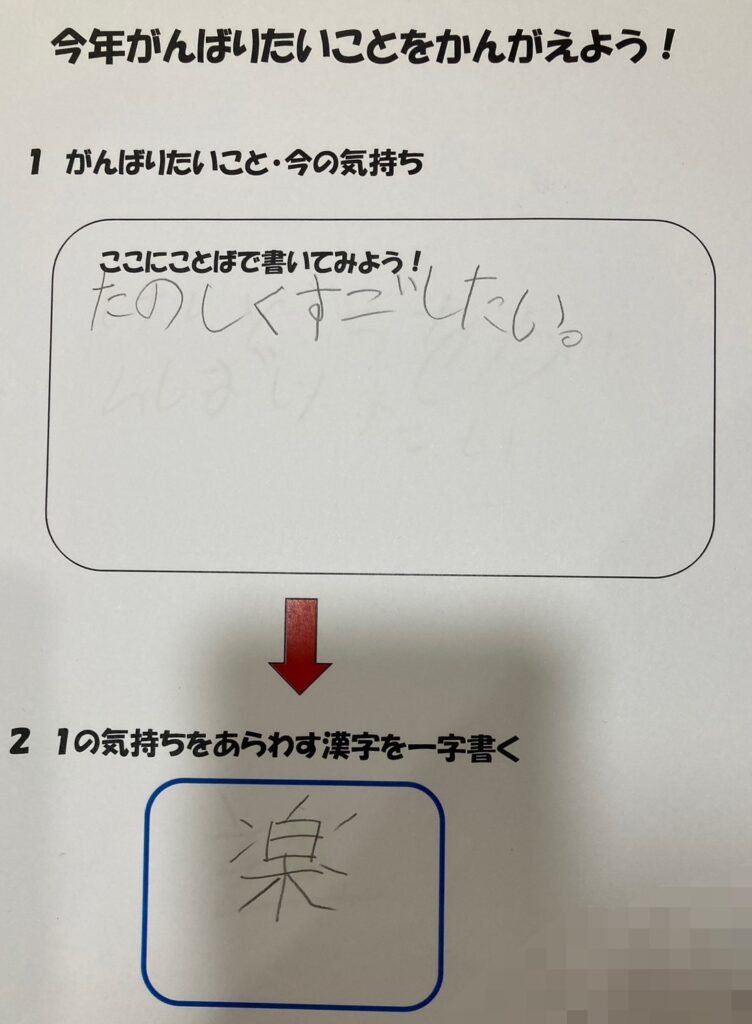 今年がんばりたいことをかんがえよう！
1 がんばりたいこと・今の気持ち
ここにことばで書いてみよう！
たのしくすごしたい。
2 1の気持ちをあらわす漢字を一字書く
楽